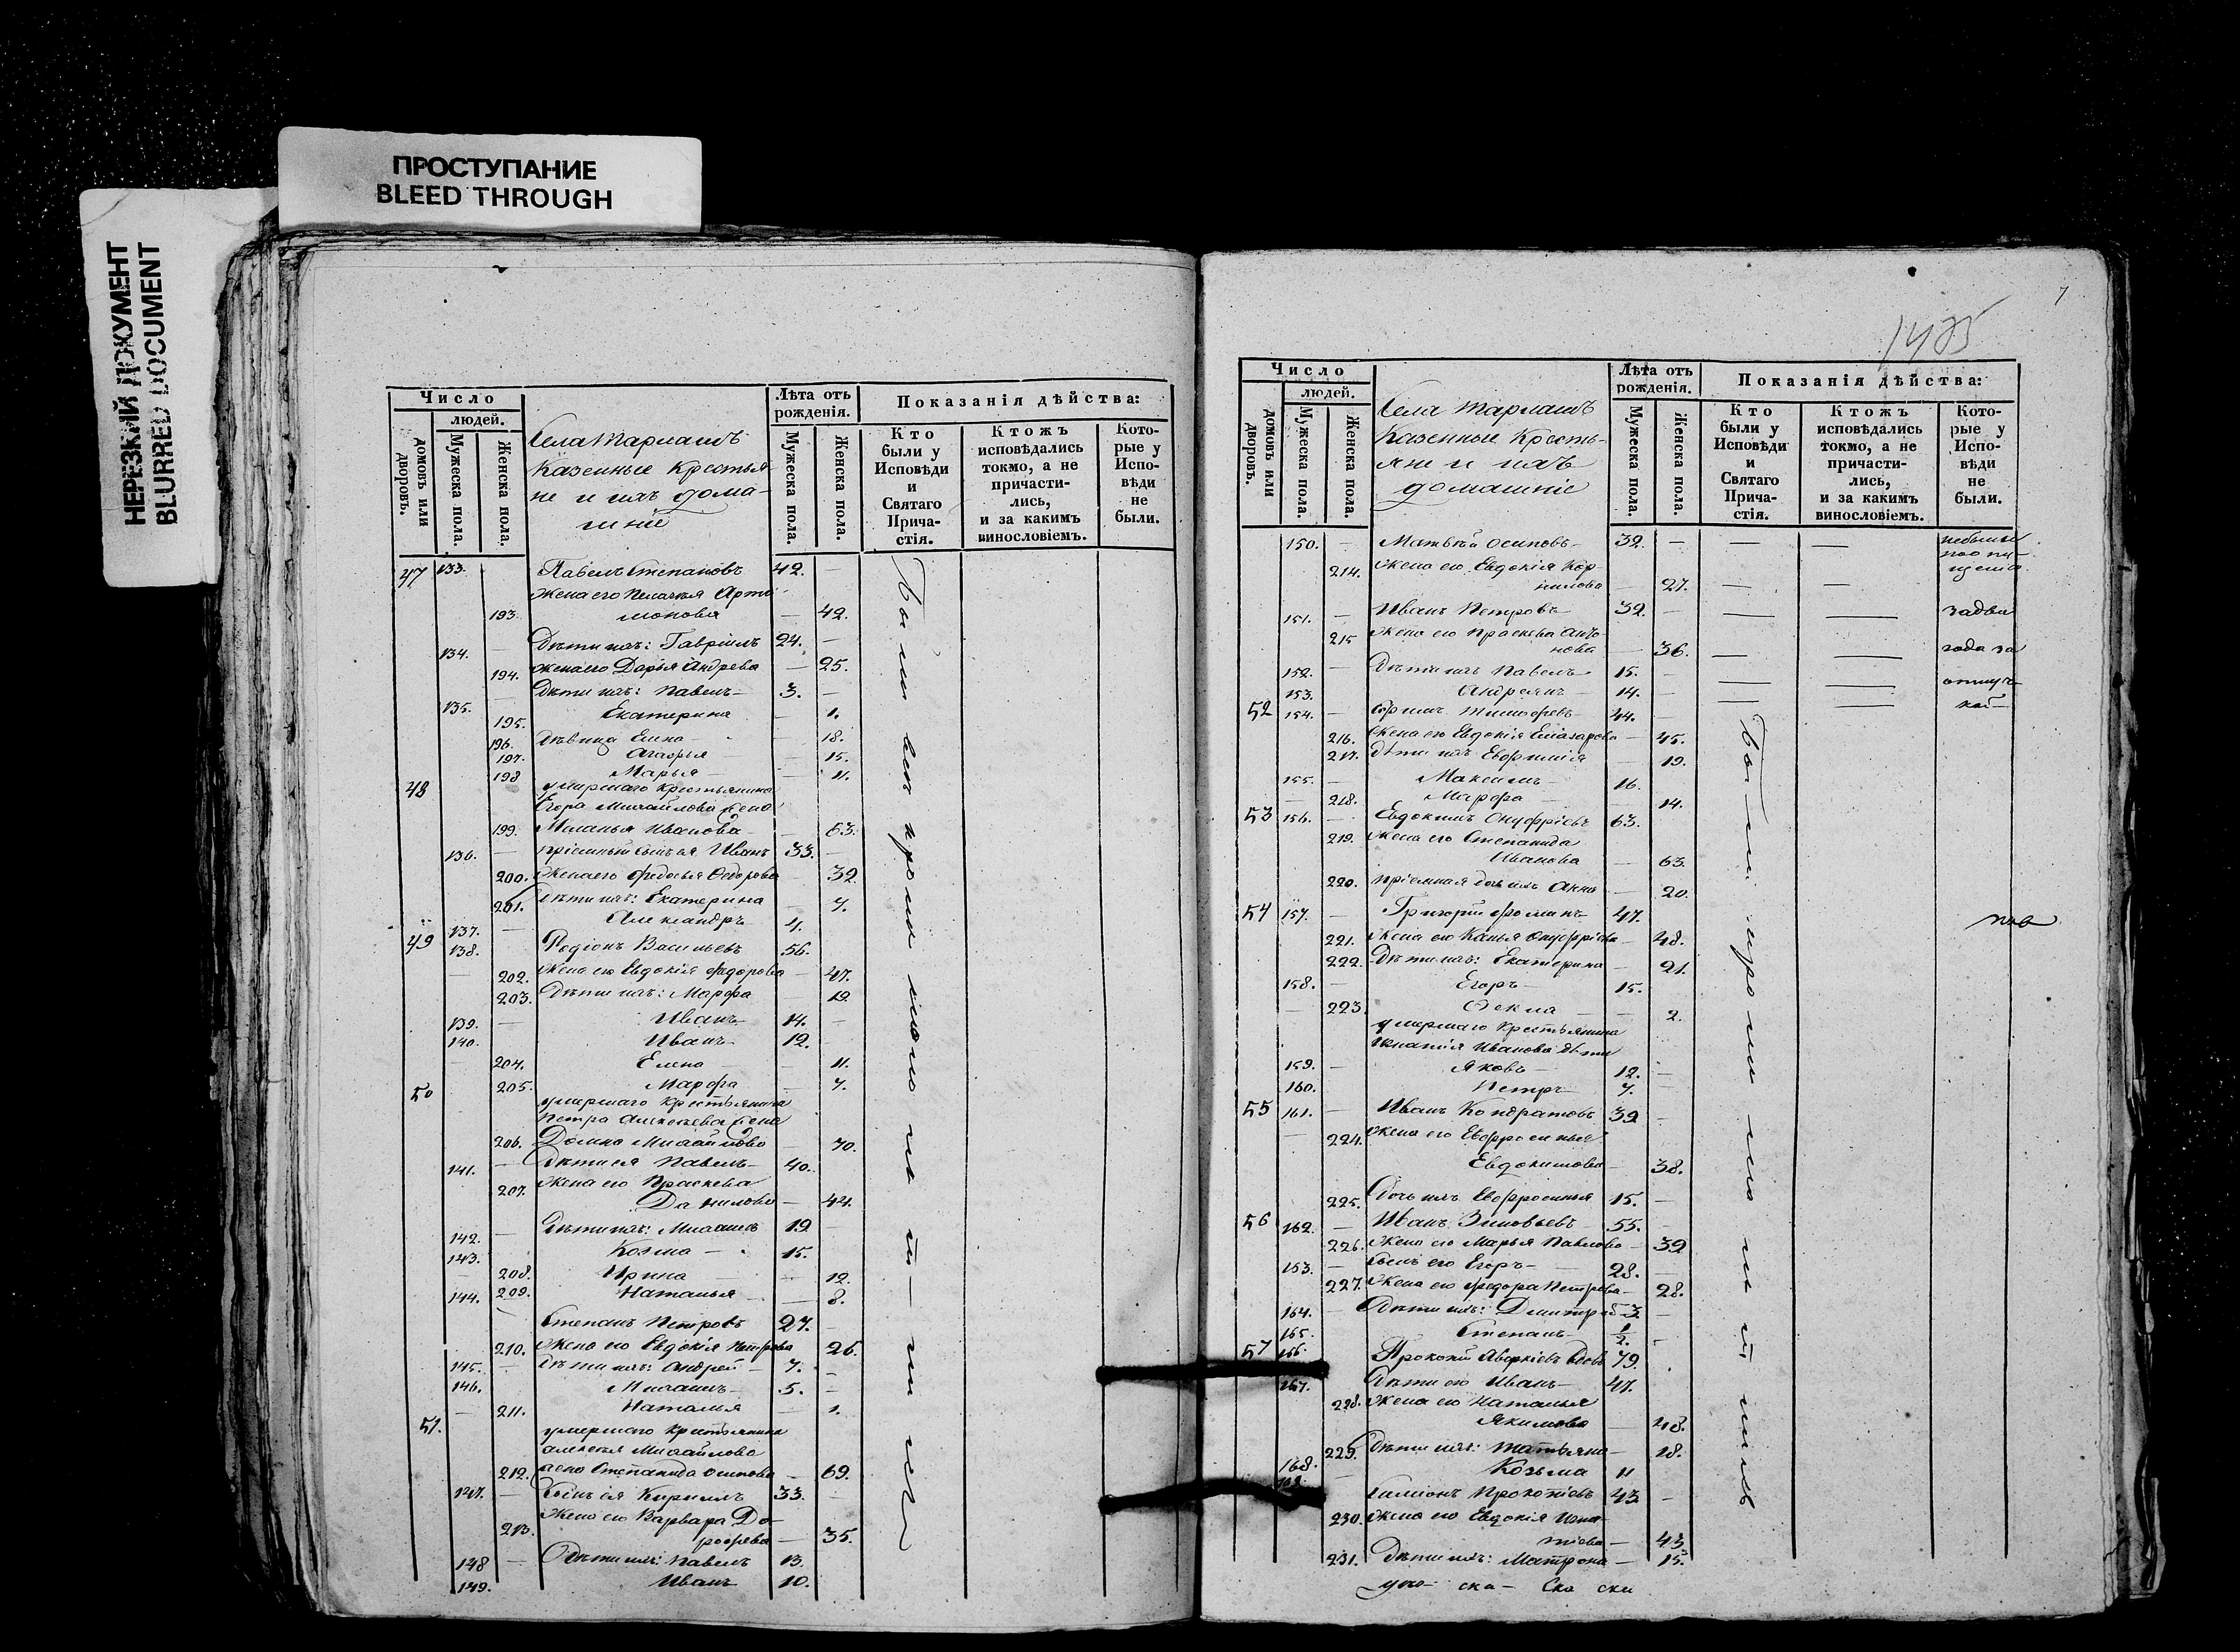 ПРОСТУПАНИЕ
BLEED THROUGH
НЕРЕЗКИЙ ДОКУМЕНТ
BLURRED DOCUMENT
Число
людей.
домовъ или дворовъ.
Мужеска пола.
Женска пола.
Села Тарлашъ
Казенные Крестья
не и ихъ дома-
шніе
Лѣта отъ рожденія.
Мужеска пола.
Женска пола.
Показанія дѣйства:
Кто были у Исповѣди и Святаго Прича-стія.
Ктожъ исповѣдались токмо, а не причасти-лись, и за какимъ винословіемъ.
Кото-рые у Испо-вѣди не были.
47 133. Павелъ Степановъ 42. —
жена его Пелагѣя Арта
193. монова — 42.
134. — Дѣти ихъ: Гавріилъ 24. —
194. жена его Дарья Андрева — 25.
135. Дѣти ихъ: Павелъ — 3. —
195. Екатерина — 1.
196. дѣвица Елена — 18.
197. Агафья — 15.
198 Марья — 11.
48 умершаго крестьянина
Егора Михайлова жена
199. Меланья Иванова — 63.
136. — пріемный сынъ ея Иванъ 33. —
200. жена его Федосья Федорова 32
201. Дѣти ихъ: Екатерина — 7.
137. — Александръ 4.
49 138. Родіонъ Васильевъ 56.
202. жена его Евдокія Федорова — 47.
203. Дѣти ихъ: Марфа — 19
139. — Иванъ 14. —
140. Иванъ 12. —
204. Елена — 11.
205. Марфа — 7.
50 умершаго крестьянина
Петра Алексѣева жена
206. Домна Михайлова 70.
141. — Дѣти ея Павелъ — 40.
207. жена его Праскева
Данилова — 44.
142. — Дѣти ихъ: Михаилъ 19 —
143. Козма — 15.
208. Ирина — 12.
144. 209. Наталья — 8.
Степанъ Петровъ 27. —
210. жена его Евдокія Петрова 26.
145. — Дѣти ихъ: Андрей — 7. —
146. Михаилъ — 5. —
211. Наталья — 1.
51. умершаго крестьянина
Алексѣя Михайлова
212. жена Степанида Осипова — 69.
147. — Сынъ ея Кириллъ 33. —
жена его Варвара До-
213. рофева — 35.
148 — Дѣти ихъ: Павелъ 13.
149. Иванъ 10.
7
1485
Число
людей.
домовъ или дворовъ.
Мужеска пола.
Женска пола.
Села Тарлашъ
Казенные Кресть-
яне и ихъ
домашніе
Лѣта отъ рожденія.
Мужеска пола.
Женска пола.
Показанія дѣйства:
Кто были у Исповѣди и Святаго Прича-стія.
Ктожъ исповѣдались токмо, а не причасти-лись, и за какимъ винословіемъ.
Кото-рые у Испо-вѣди не были.
150. — Матвѣй Осиповъ — 32. — — —
214. жена его Евдокія Кор-
нилова — 27. — —
151. — Иванъ Петровъ 32. — — —
215 жена его Праскева
нова — 36. — —
152. — Дѣти ихъ Павелъ 15. — — —
153. Андреянъ — 14. — — —
52 154. — Тимофеевъ 44. —
216. жена его Евдокія Елиазарова — 45.
217. Дѣти ихъ Евфимія 19.
155. — Максимъ — 16.
218. Марфа — 14.
53 156. — Евдокимъ Онуфріевъ 63.
219. жена его Степанида
Иванова — 63.
220. пріемная дочь ихъ Анна — 20.
54 157. — Григорій Фоминъ 47.
221. жена его Онуфріева — 48.
222. Дѣти ихъ: Екатерина — 21.
158. — Егоръ — 15.
223. Фекла — 2.
умершаго крестьянина
Игнатія Иванова дѣти
159. — Яковъ — 12. —
160. Петръ 7.
55 161. — Иванъ Кондратовъ 39 —
224. жена его Евфросинья
Евдокимова — 38.
225. Дочь ихъ Евфросинья 15. —
56 162. — Иванъ Зиновьевъ 55. —
226. жена его Марья Павлова — 39
153. — Сынъ его Егоръ — 28. —
227. жена его Федора Петрова — 28.
164. — Дѣти ихъ: Димитрій 3 —
165. Степанъ — 1/2. —
57 166. Прокопій Аверкіевъ вдовъ 79.
167. Дѣти его Иванъ — 47.
228. жена его Наталья
Якимова — 48.
229. Дѣти ихъ: Татьяна — 18.
168. — Козьма 11
169. Симіонъ Прокопіевъ 43 —
230. жена его Евдокія Игна-
тіева — 43.
231. Дѣти ихъ: Матрона — 15.